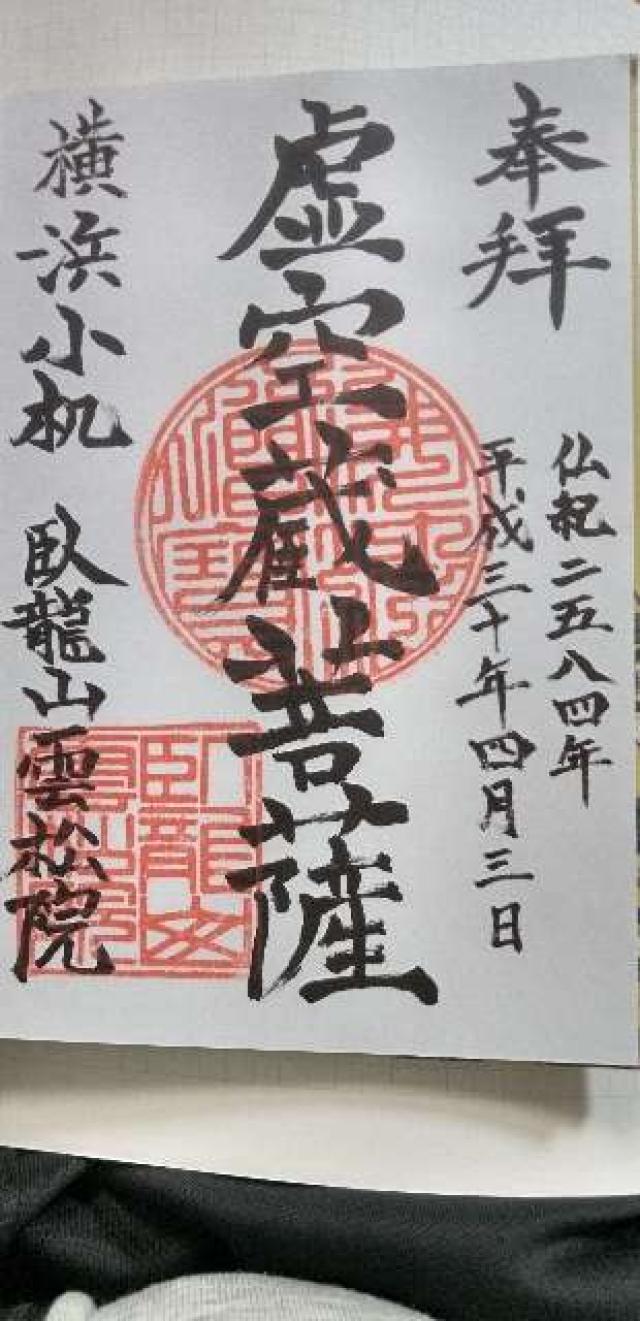 奉拝
仏紀二五八四年
平成三十年四月三日
虚空蔵菩薩
横浜小机 臥龍山雲松院